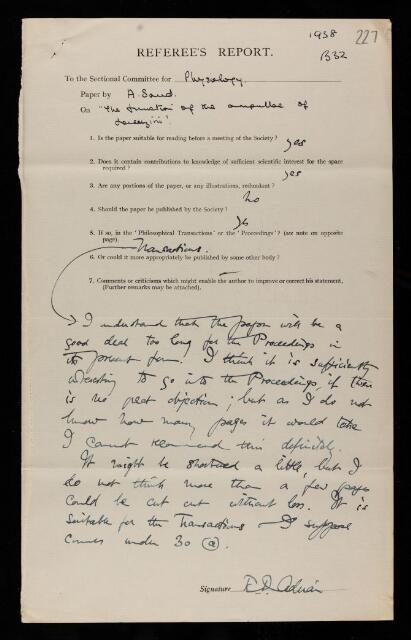 1938
227
B32
REFEREE'S REPORT.
To the Sectional Committee for Physiology.
Paper by A. Sand.
On "The function of the ampullae of
Lorenzini".
1. Is the paper suitable for reading before a meeting of the Society? yes
2. Does it contain contributions to knowledge of sufficient scientific interest for the space
required? yes
3. Are any portions of the paper, or any illustrations, redundant?
No
4. Should the paper be published by the Society?
Yes
5. If so, in the 'Philosophical Transactions' or the 'Proceedings'? (see note on opposite
page). Transactions.
6. Or could it more appropriately be published by some other body?
7. Comments or criticisms which might enable the author to improve or correct his statement.
(Further remarks may be attached).
I understand that the paper will be a
good deal too long for the Proceedings in
its present form. I think it is sufficiently
interesting to go into the Proceedings, if there
is no great objection; but as I do not
know how many pages it would take
I cannot recommend this definitely.
It might be shortened a little, but I
do not think more than a few pages
could be cut out without loss. It is
suitable for the Transactions - I suppose
comes under 30 (a).
Signature E.D. Adrian